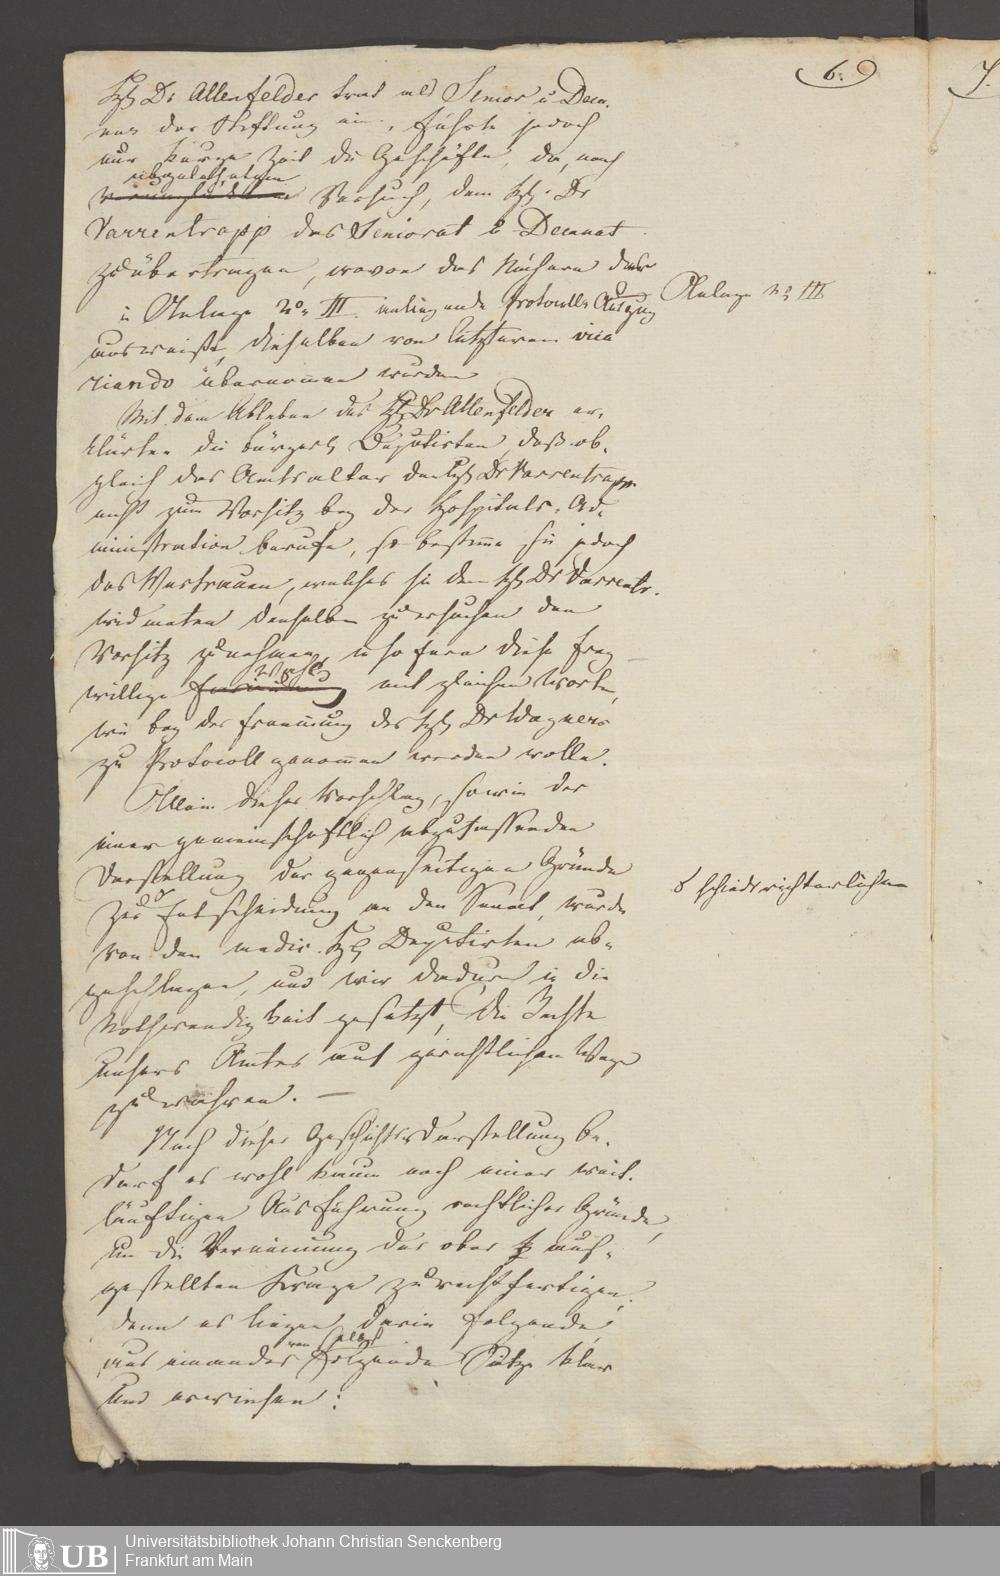 6.
7.
Hr Dr Allenfelder trat als Senior u Deca-
nus der Stiftung ein, führte jedoch
nur kurze Zeit die Geschäfte, da, nach
abgelehntem
Versuch, dem Hr. Dr
Varrentrapp das Seniorat & Decanat
zu übertragen, wovon das Nähere der
in Anlage No. III. anliegende Protocolls Auszug
Anlage No III
ausweißt, dieselben von letzterem vica
riando übernommen wurden
Mit dem Ableben des Hr Dr Allenfelder er-
klärten die bürgerl Deputirten, daß ob-
gleich das Amtsalter den Hr Dr Varrentrapp
nicht zum Vorsitz bey der Hospitals-Ad-
ministration berufe, so bestimme sie jedoch
das Vertrauen, welches sie dem Hr Dr Varrentr.
widmeten denselben zu ersuchen den
Vorsitz zu nehmen, in so fern diese frey
Wahl
willige mit gleichen Worten,
wie bey der Ernennung des Hr Dr Wagners
zu Protocoll genommen werden wolle.
Allein dieser Vorschlag, sowie der
einer gemeinschaftlich abzufassenden
Darstellung der gegenseitigen Gründe
schiedsrichterlichen
zur Entscheidung an den Senat, wurde
von den medic. Hr Deputirten ab-
geschlagen, und wir dadurch in die
Nothwendigkeit gesetzt, die Rechte
unsers Amtes auf gerichtlichem Wege
zu wahren. —
Nach dieser Geschichtsdarstellung be-
darf es wohl kaum noch einer weit-
läuftigen Ausführung rechtlicher Gründe,
um die Verneinung der oben auf-
gestellten Frage zu rechtfertigen,
denn es liegen darin folgende
von selbst
aus einander folgende Sätze klar
und erwiesen:
UB
Universitätsbibliothek Johann Christian Senckenberg
Frankfurt am Main